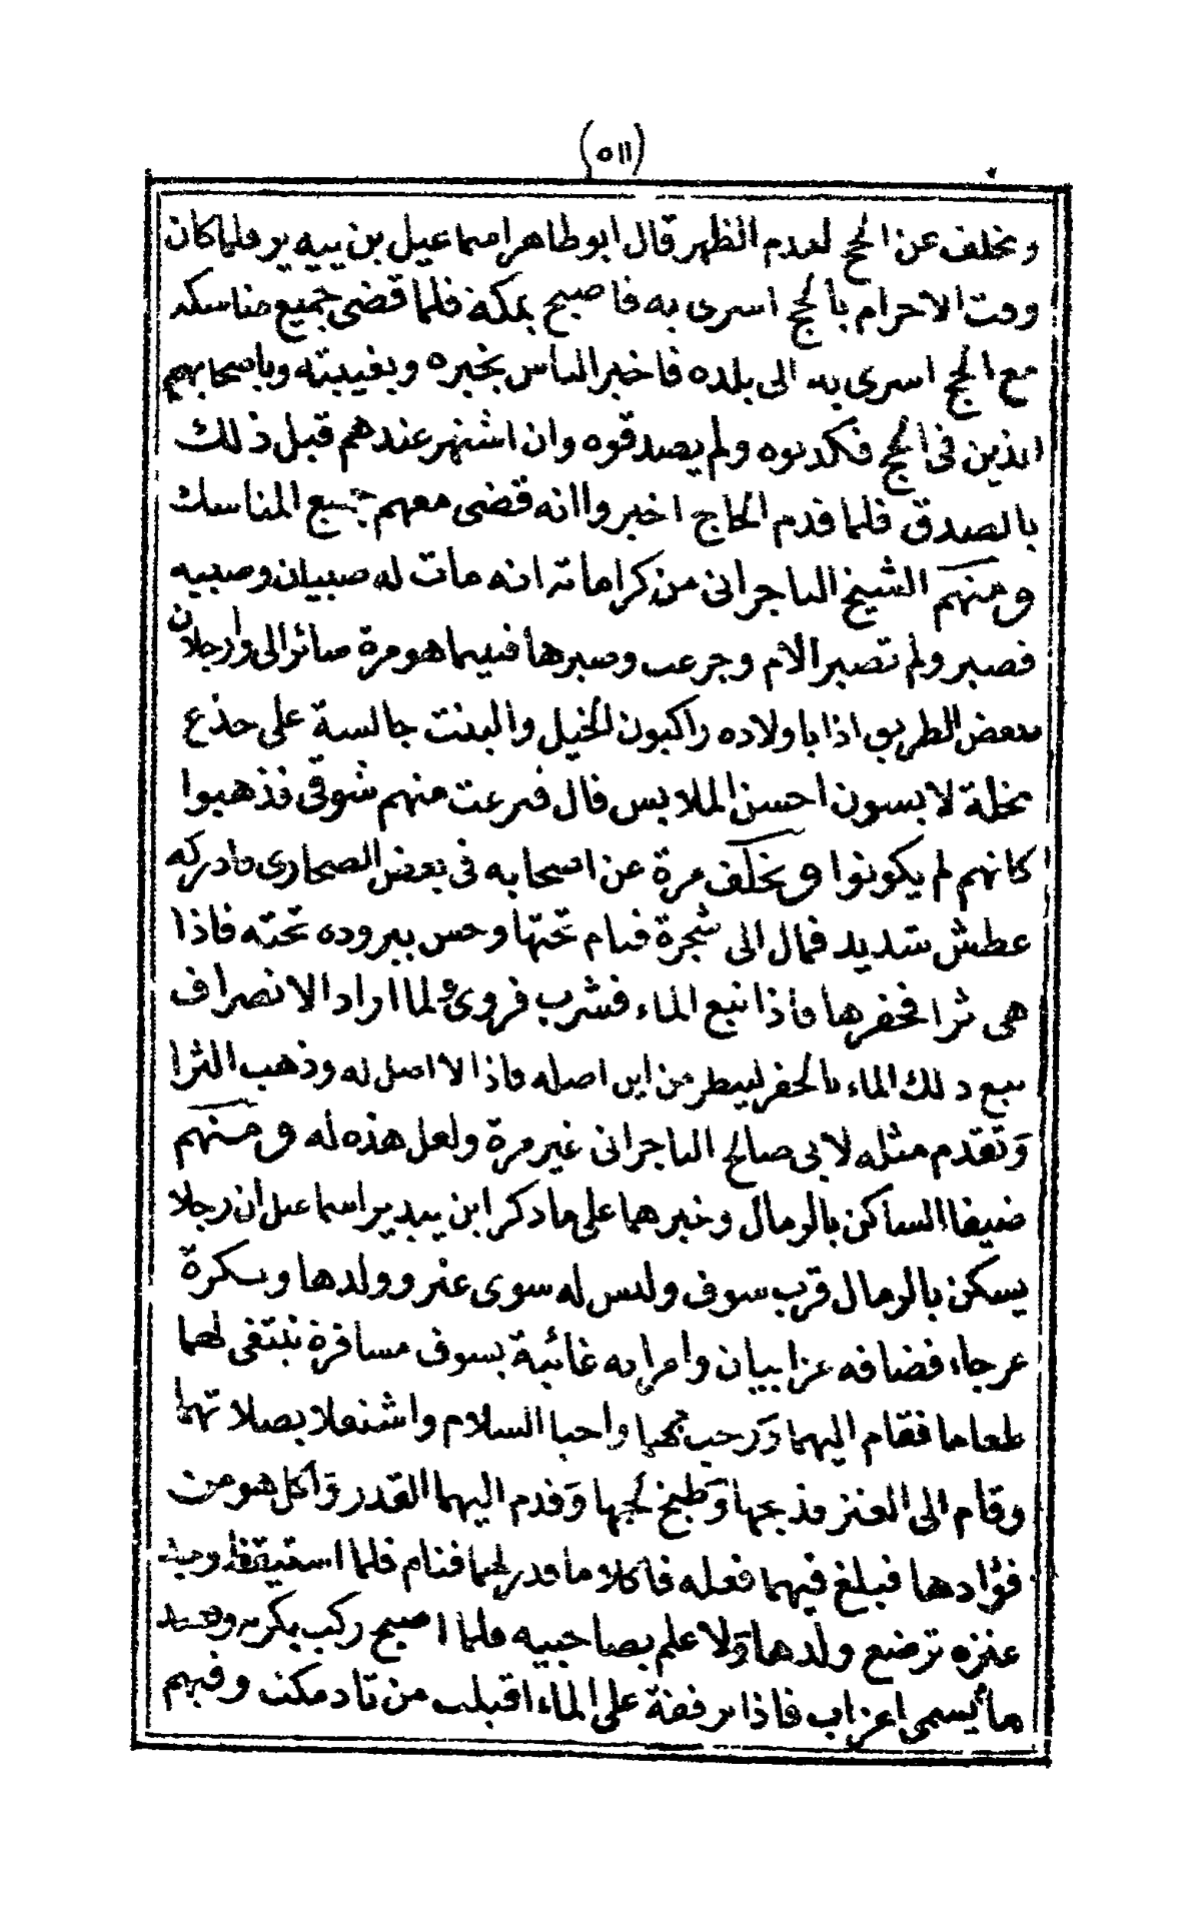 (٥١١)
وتخلف عن الحج لعدم الظهر قال ابو طاهر اسماعيل بن ييدير فلما كان
وقت الاحرام بالحج اسرى به فاصبح بمكة فلما قضى جميع مناسكه
مع الحج اسرى به الى بلده فاخبر الناس بخبره وبغيبته وباصحابهم
الذين فى الحج فكذبوه ولم يصدقوه وان اشتهر عندهم قبل ذلك
بالصدق فلما قدم الحاج اخبروا انه قضى معهم جميع المناسك
ومنهم الشيخ الناجرانى من كراماته انه مات له صبيان وصبيه
فصبر ولم تصبر الام وجزعت وصبرها فبينما هو مرة سائر الى وارجلان
ببعض الطريق اذا باولاده راكبون الخيل والبنت جالسة على جذع
نخلة لابسون احسن الملابس قال فسرعت منهم شوقى فذهبوا
كانهم لم يكونوا وتخلف مرة عن اصحابه فى بعض الصحارى فادركه
عطش شديد فمال الى شجرة فنام تحتها وحس ببروده تحته فاذا
هى ثرا فحفرها فاذا نبع الماء فشرب فروى ولما اراد الانصراف
تبع ذلك الماء بالحفر لينظر من اين اصله فاذا لا اصل له وذهب الثرا
وتقدم مثله لابى صالح الناجرانى غير مرة ولعل هذه له ومنهم
ضيفا الساكن بالرمال وخبرهما على ما ذكر ابن ييدير اسماعيل ان رجلا
يسكن بالرمال قرب سوف وليس له سوى عنز وولدها وبكرة
عرجاء فضافه عزابيان وامراته غائبة بسوف مسافرة تبتغى لهما
طعاما فقام اليهما ورحب بهما واجبا السلام واشتغلا بصلاتهما
وقام الى العنز فذبحها وطبخ لحمها وقدم اليهما القدر واكل هو من
فؤادها فبلغ فيهما فعله فاكلا ما قدر لهما فنام فلما استيقظ وجد
عنزه ترضع ولدها ولا علم بصاحبيه فلما اصبح ركب بكرته وقصد
ماء يسمى اعزاب فاذا برفقة على الماء اقبلت من تادمكت وفيهم